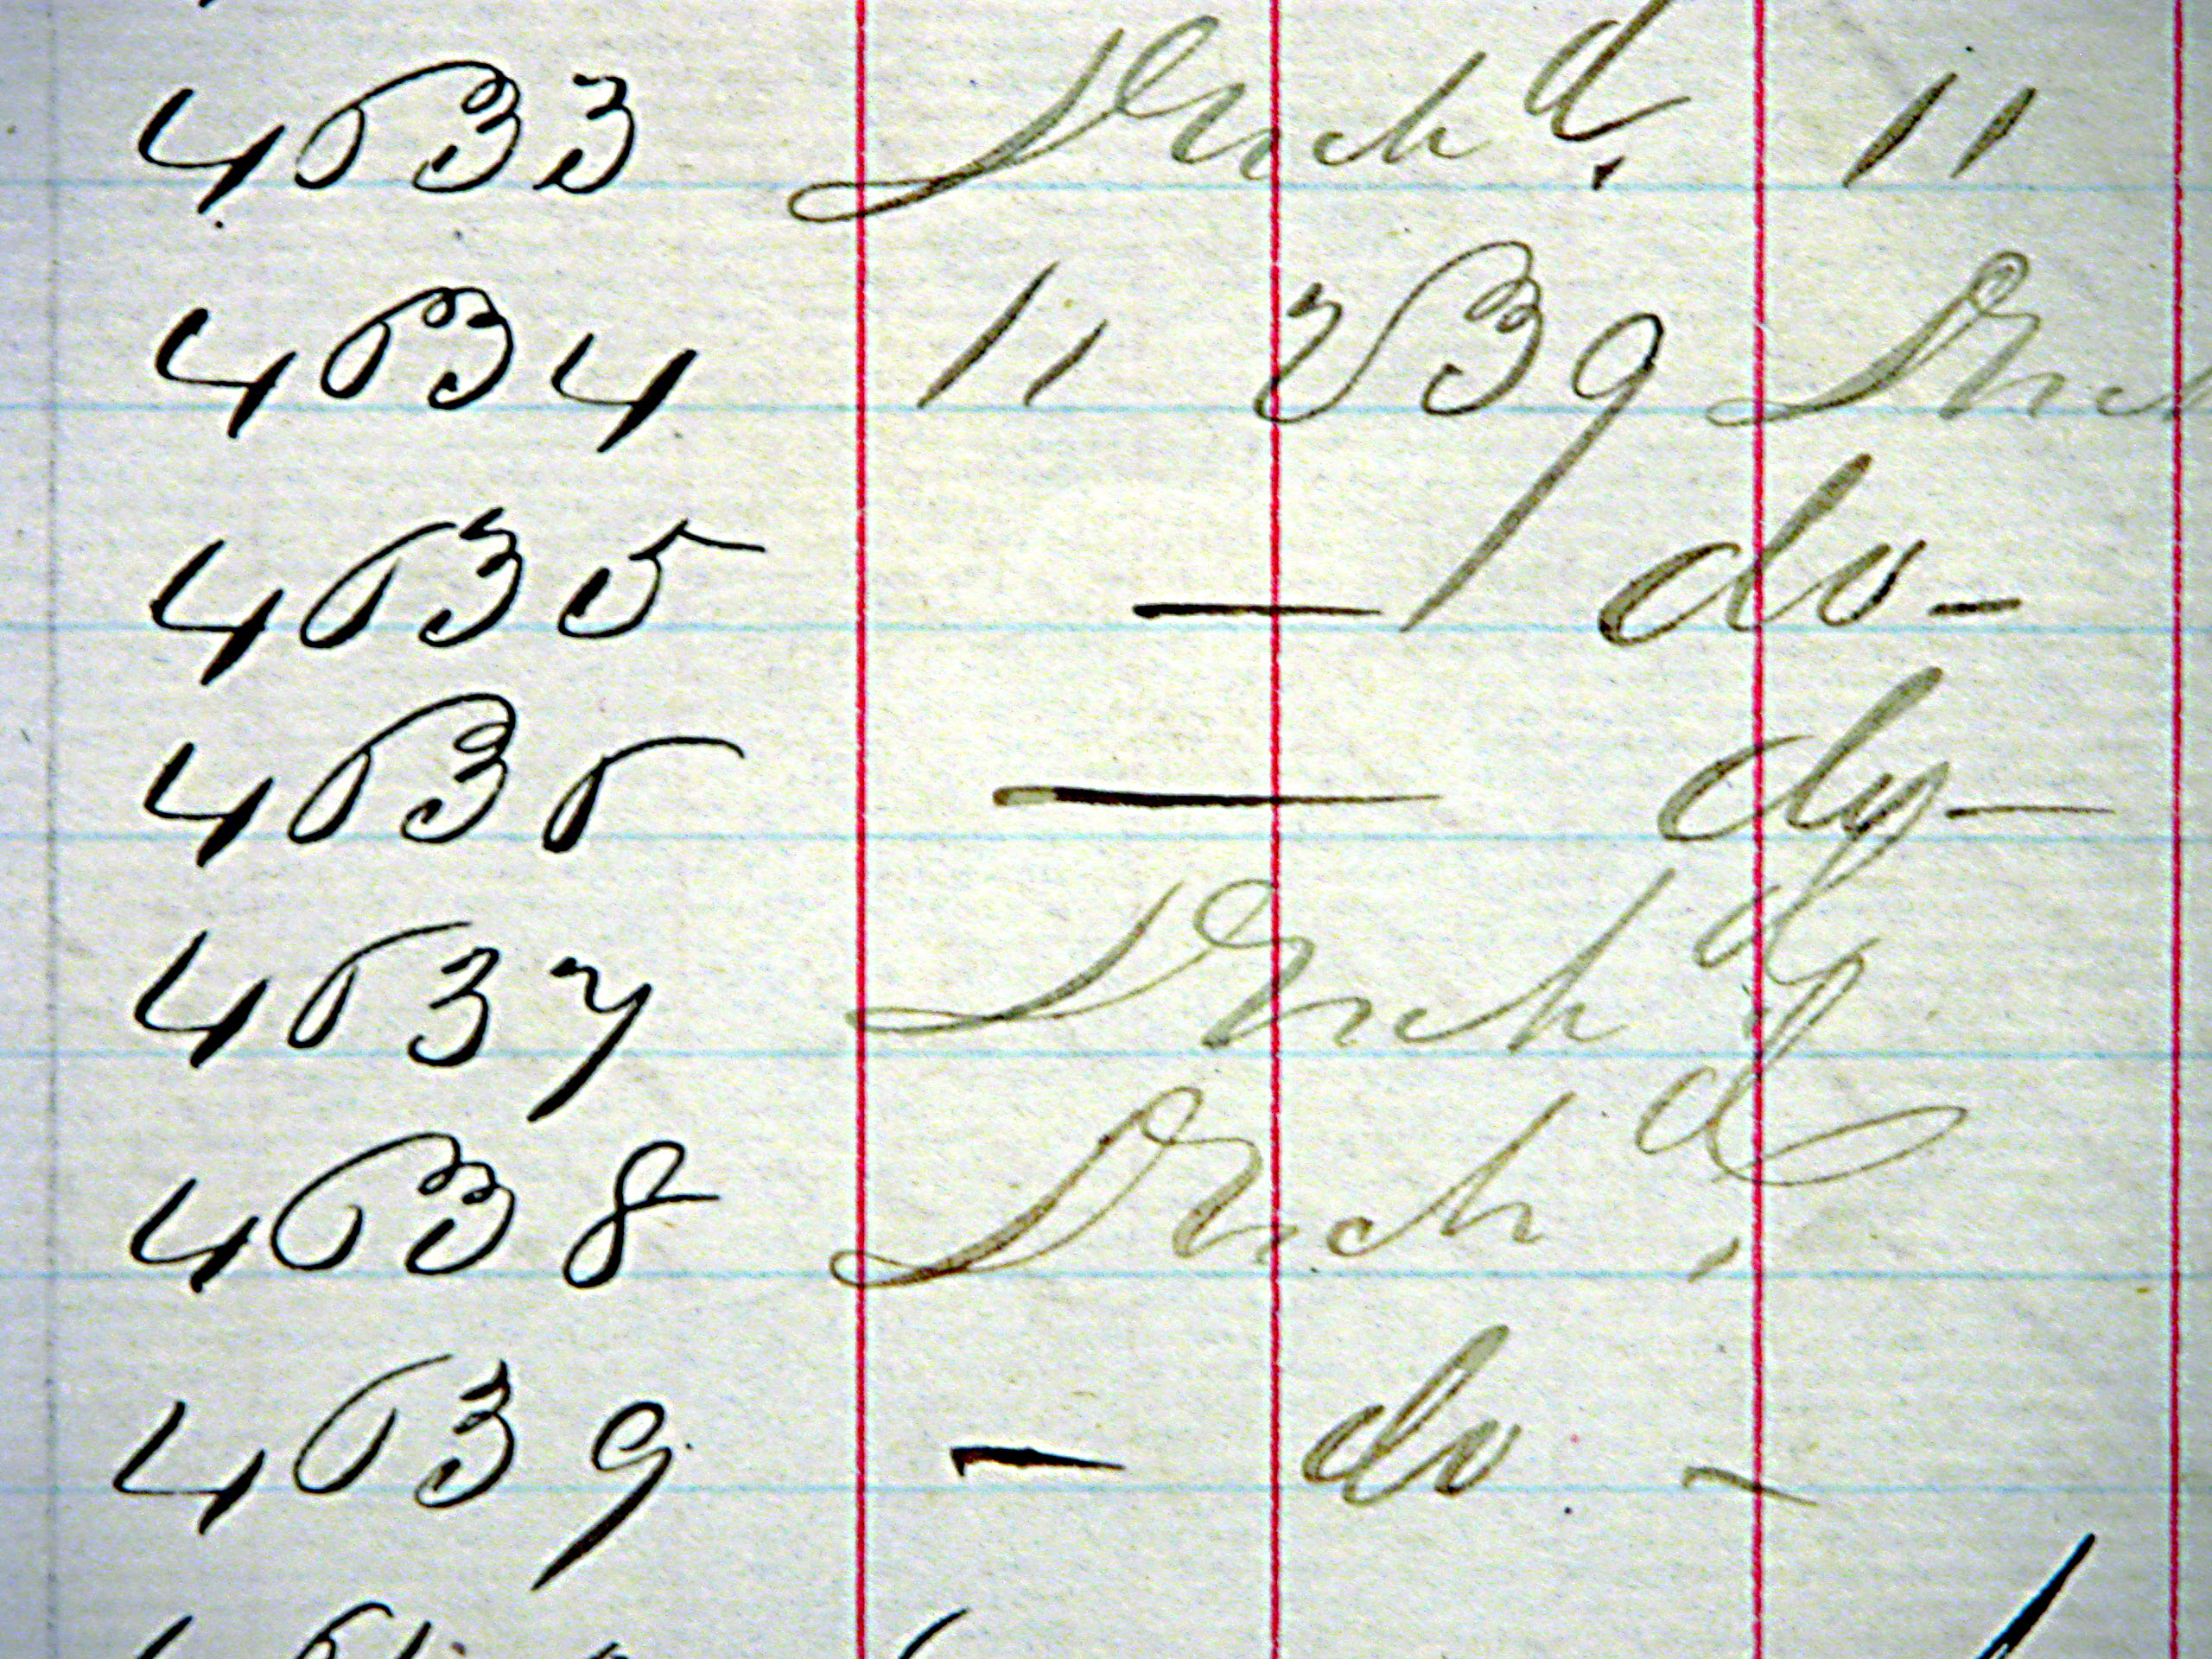 4633 Disch d. 11
4634 11 2639 Disch
4635 — do –
4636 — do —
4637 Disch d
4638 Disch d
4639 – do –